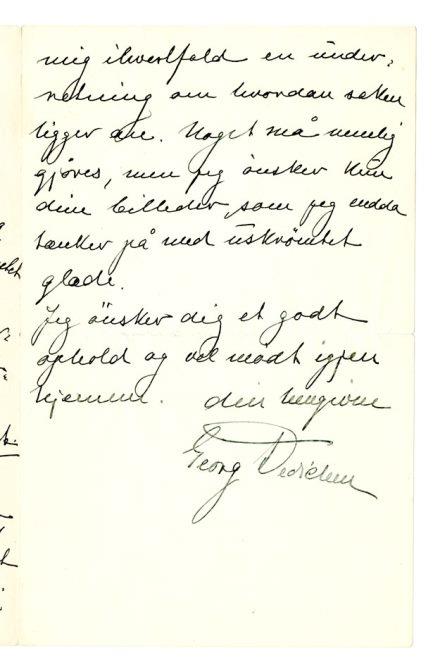 mig ihvertfald en under-
retning om hvordan saken
ligger an. Noget må nemlig
gjöres, men jeg önsker kun
dine billeder, som jeg endda
tænker på med uskrömtet
glæde.
Jeg önsker dig et godt
ophold og vel mödt igjen
hjemme. din hengivne
Georg